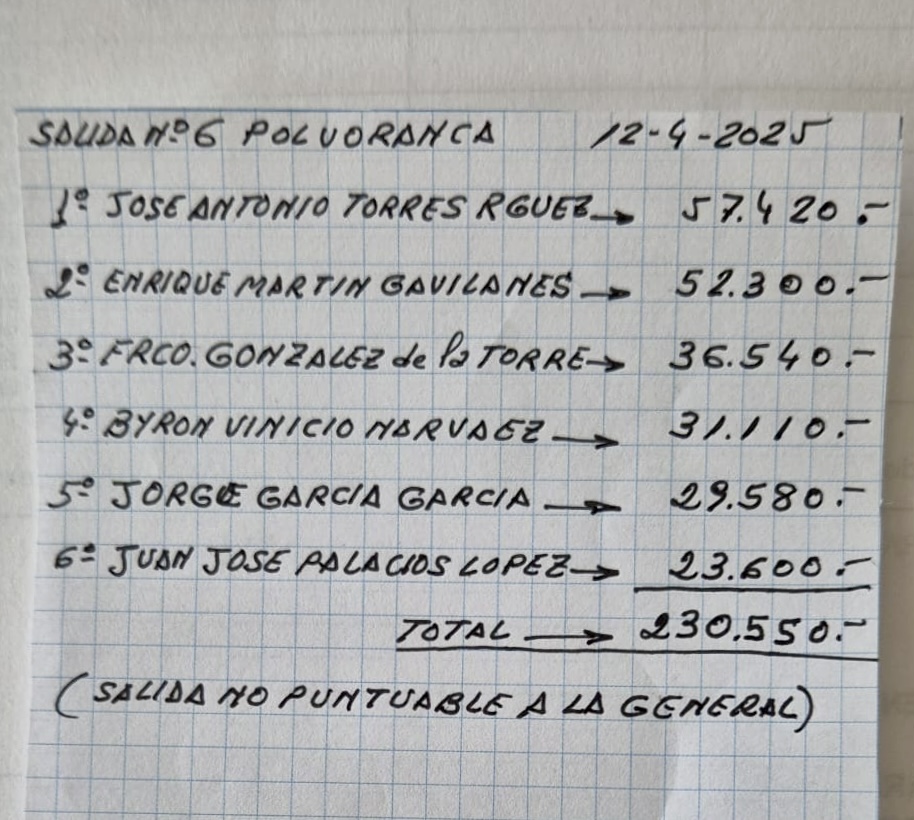 SALIDA Nº 6 POLVORANCA 12-4-2025
1º JOSE ANTONIO TORRES RGUEZ → 57.420.-
2º ENRIQUE MARTIN GAVILANES → 52.300.-
3º FRCO. GONZALEZ de la TORRE → 36.540.-
4º BYRON VINICIO NARVAEZ → 31.110.-
5º JORGE GARCIA GARCIA → 29.580.-
6º JUAN JOSE PALACIOS LOPEZ → 23.600.-
TOTAL → 230.550.-
(SALIDA NO PUNTUABLE A LA GENERAL)